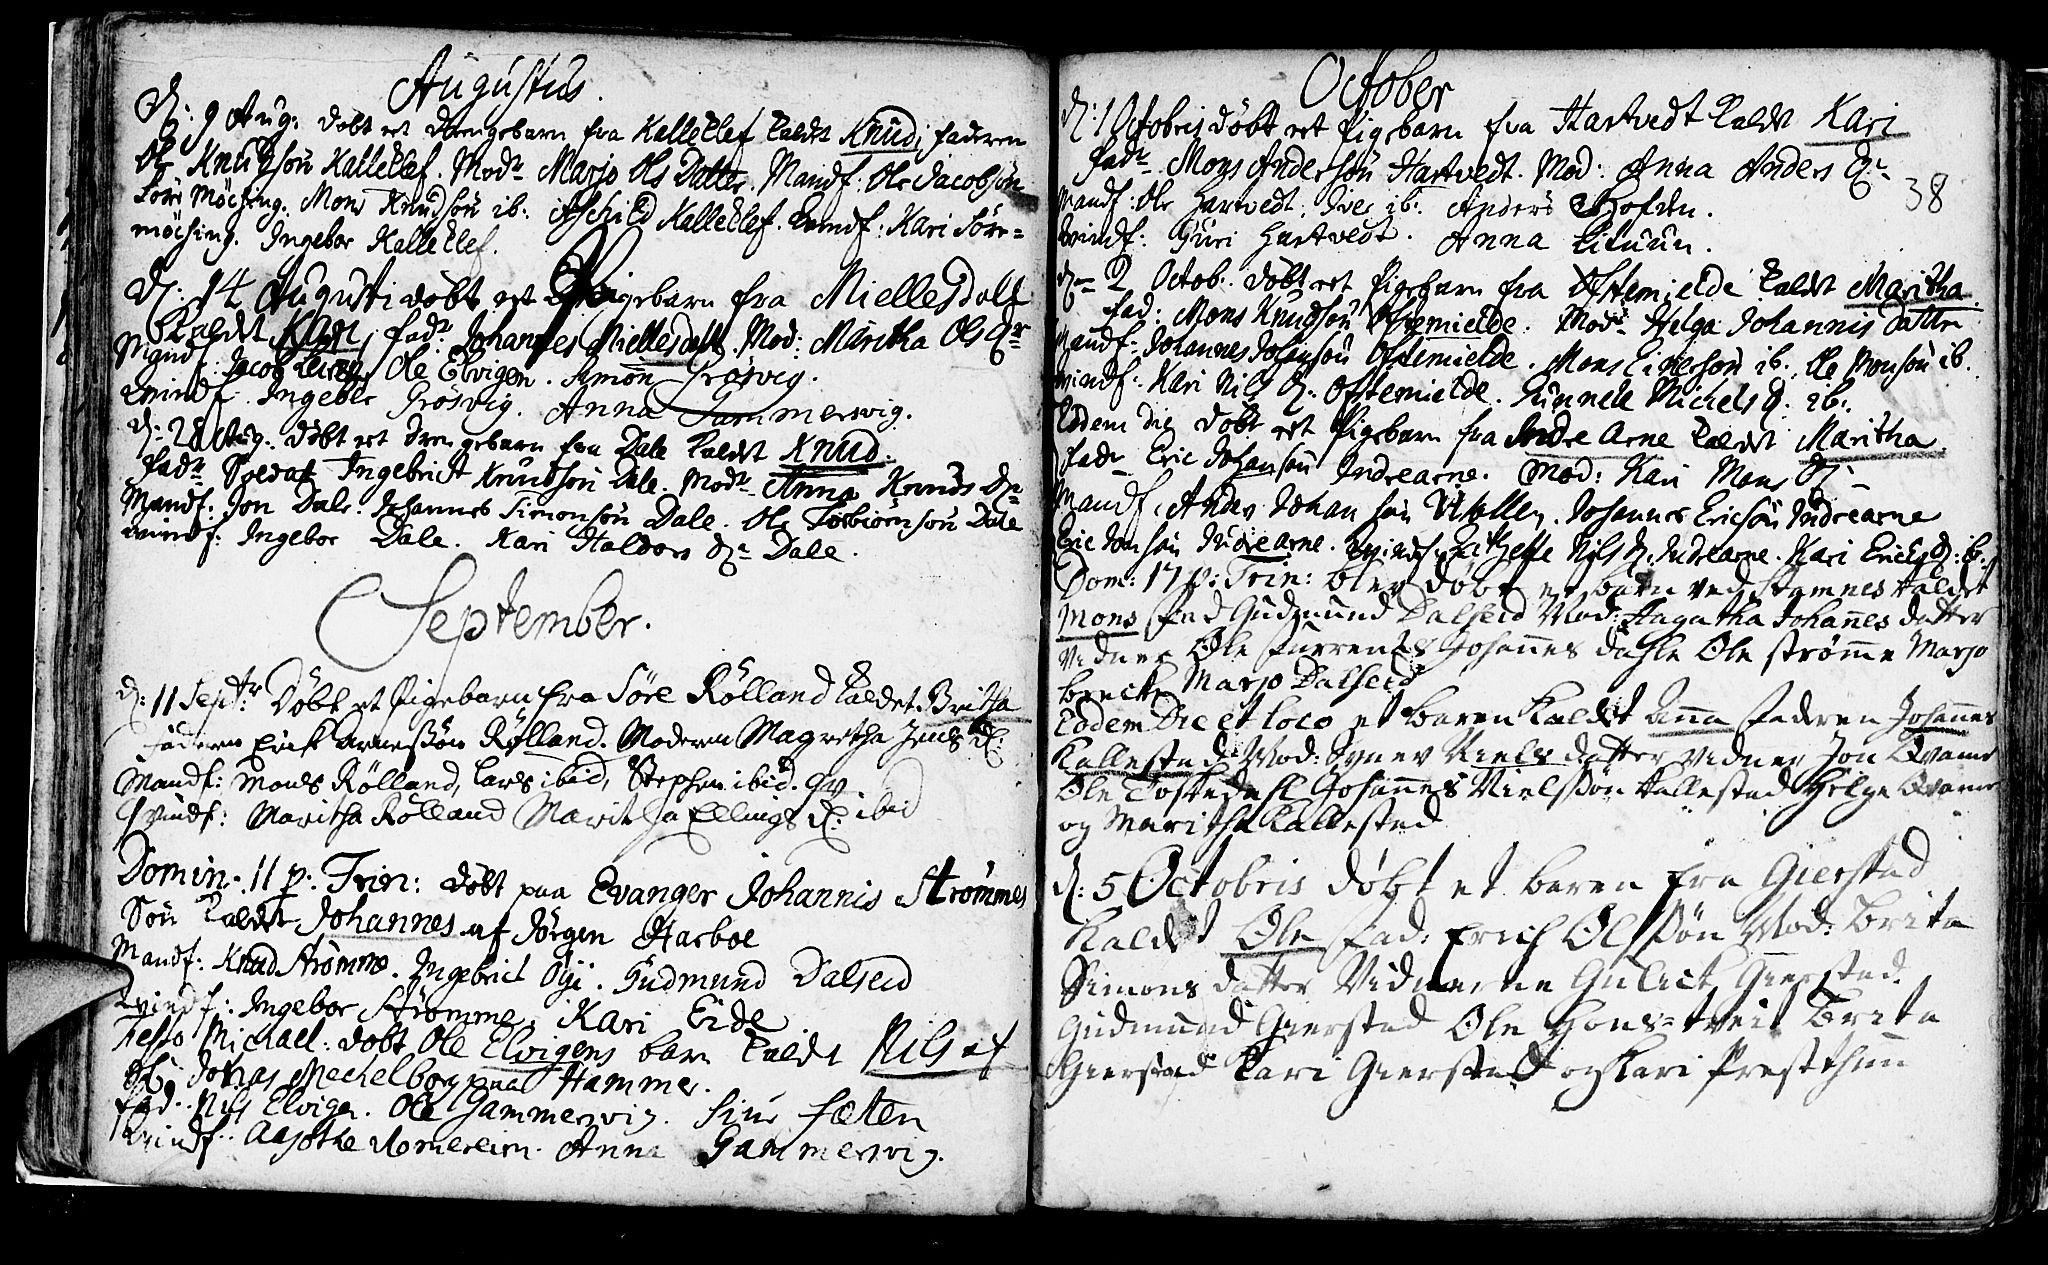 Augustus.
d: 9 Aug: døbt et drengebarn fra Kalleklef kaldt Knud, faderen
Ole Knudsøn Kalleklef. Modr Marjo Ols Datter. Mandf: Ole Jacobsøn
Søre Møching. Mons Knudsøn ib: Aschild Kalleklef. Qvindf: Kari Søre=
møching. Ingebor Kalleklef.
d: 14 Augusti døbt et Pigebarn fra Miellesdalf
kaldet Kari, fadr Johannes Miellesdalf. Mod: Maritha Ols Dr
Mandf: Jacob Ole Elvigen. Simon Trøsvig.
qvindf: Ingebor Trøsvig. Anna Gammersvig.
d: 28 Aug. døbt et drengebarn fra Dale kaldt Knud.
fadr Soldat Ingebrict Knudsøn Dale. Modr Anna Knuds Dr
Mandf: Jon Dale. Johannes Simonsøn Dale. Ole Torbiørnsøn Dale
qvindf: Ingebor Dale. Kari Haldors dr Dale.
September.
d: 11 Septr: Døbt et Pigebarn fra Søre Rølland kaldet Britha
faderen Erik Arnessøn Rølland. Moderen Magretha Jens d:
Mandf: Mons Rølland, Lars ibid, Stephen ibid. qv
qvindf: Maritha Rølland Maritha Ellings d: ibid
Domin. 11 p. Trin: døbt paa Evanger Johannis Strømmes
Søn kaldt Johannes af Jørgen Harboe
Mandf: Knud Strømme. Ingebrict Øyi. Gudmund Dalseid
qvindf: Ingebor Strømme, Kari Eide
Festo Michael: døbt Ole Elvigens barn kaldt Nils af
Hr Jonas Mechelborg paa Hammer.
fad. Nils Elvigen. Ole Gammersvig. Siur Sæten
qvindf: Aagothe Romereim. Anna Gammersvig.
October
38
d: 1 Octobris døbt et Pigebarn fra Hartvedt kaldt Kari
fadr Mons Andersøn Hartvedt. Mod: Anna Anders Dr
Mandf: Ole Hartvedt, Iver ib: Anders Hofden.
qvindf: Guri Hartvedt. Anna
d: 2 Octob. døbt et Pigebarn fra Ostemielde kaldt Maritha.
fad: Mons Knudsøn Ostemielde. Modr Helga Johannis datter
Mandf: Johannes Johansøn Ostemielde. Mons ib. Ole Monsøn ib.
qvindf: Kari Nils D. Ostemielde. Gunnele Michels d: ib.
Eodem die døbt et Pigebarn fra Indre Arne kaldt Maritha
fadr Eric Johansøn Indrearne. Mod: Kari Mons D:
Mandf: Anders Johansøn Johannes Ericsøn Indrearne
Eric Jonsøn Indrearne. qvindf: Nils d. Indrearne. Kari Erichs d: ib.
Dom: 17 p: Trin: blev døbt et barn ved Stamnes kaldet
Mons fad Gudmund Dalseid Mod: Aagatha Johannes datter
Vidner Ole Furrenes Johannes Dahle Ole Strømme Marjo
Brecke Marjo Dalseid
Eodem Die et loco et baren kaldet Anna fadren Johannes
Kallestad Mod: Synev Niels datter vidner Jon Qvame
Ole Johannes Nielssøn Kallestad Helge Qvame
og Maritha Kallestad
d: 5 Octobris døbt et baren fra Gierstad
kaldet Ole fad: Erich Olssøn Mod: Brita
Simons datter Vidnerne Gulick Gierstad
Gudmund Gierstad Ole Hons=tveit Brita
Gierstad Kari Gierstad og Kari Prestthun